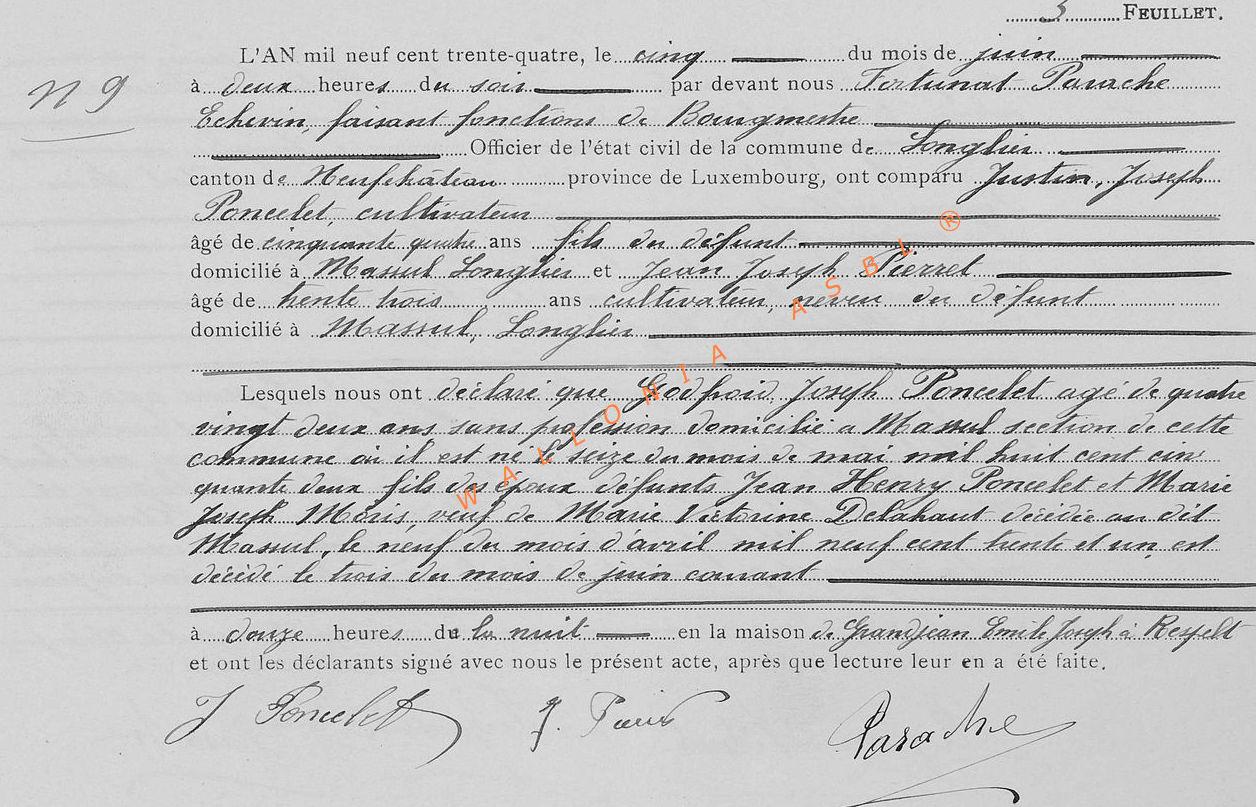 3 FEUILLET.
N 9
L'AN mil neuf cent trente-quatre, le cinq du mois de juin
à deux heures du soir par devant nous Fortunat Parache
Echevin, faisant fonctions de Bourgmestre
Officier de l'état civil de la commune de Longlier
canton de Neufchâteau province de Luxembourg, ont comparu Justin, Joseph
Poncelet, cultivateur
âgé de cinquante quatre ans fils du défunt
domicilié à Massul Longlier et Jean Joseph Pierret
âgé de trente trois ans cultivateur, neveu du défunt
domicilié à Massul, Longlier
Lesquels nous ont déclaré que Godfroid, Joseph Poncelet agé de quatre
vingt deux ans sans profession domicilié a Massul section de cette
commune ou il est né le seize du mois de mai mil huit cent cin
quante deux fils des époux défunts Jean Henry Poncelet et Marie
Joseph Moris, veuf de Marie Victorine Delahaut décédée au dit
Massul, le neuf du mois d'avril mil neuf cent trente et un est
décédé le trois du mois de juin courant
à douze heures du la nuit en la maison de Grandjean Emile Joseph à Respelt
et ont les déclarants signé avec nous le présent acte, après que lecture leur en a été faite.
J Poncelet J. Parache
WALLONIA ASBL ®